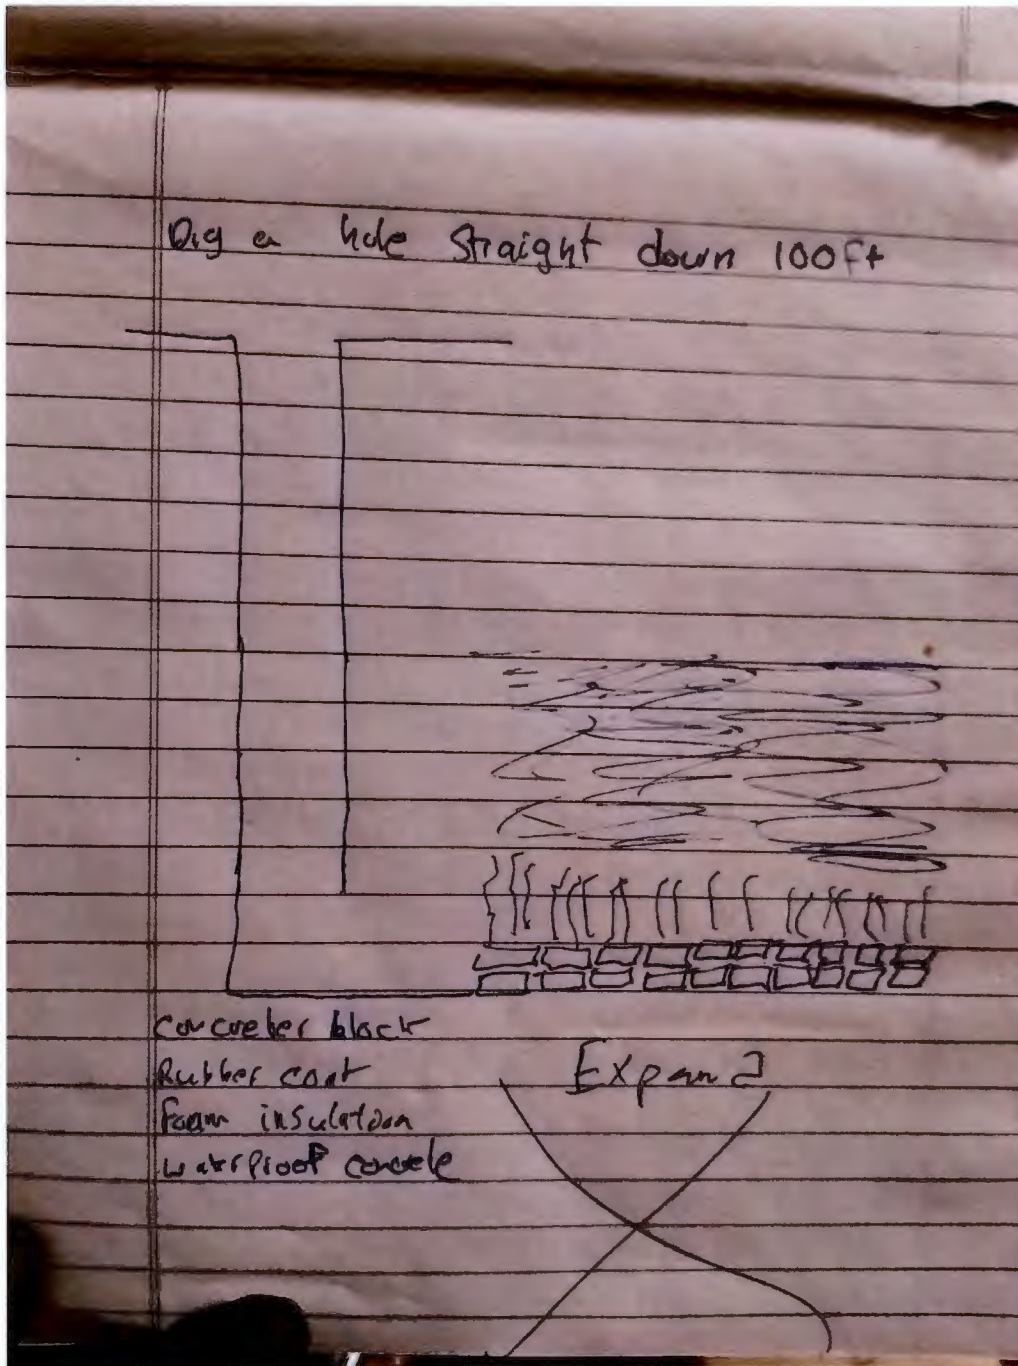 Dig a hole straight down 100ft
concreter block
Rubber coat
Foam insulation
Expand
waterproof concrete